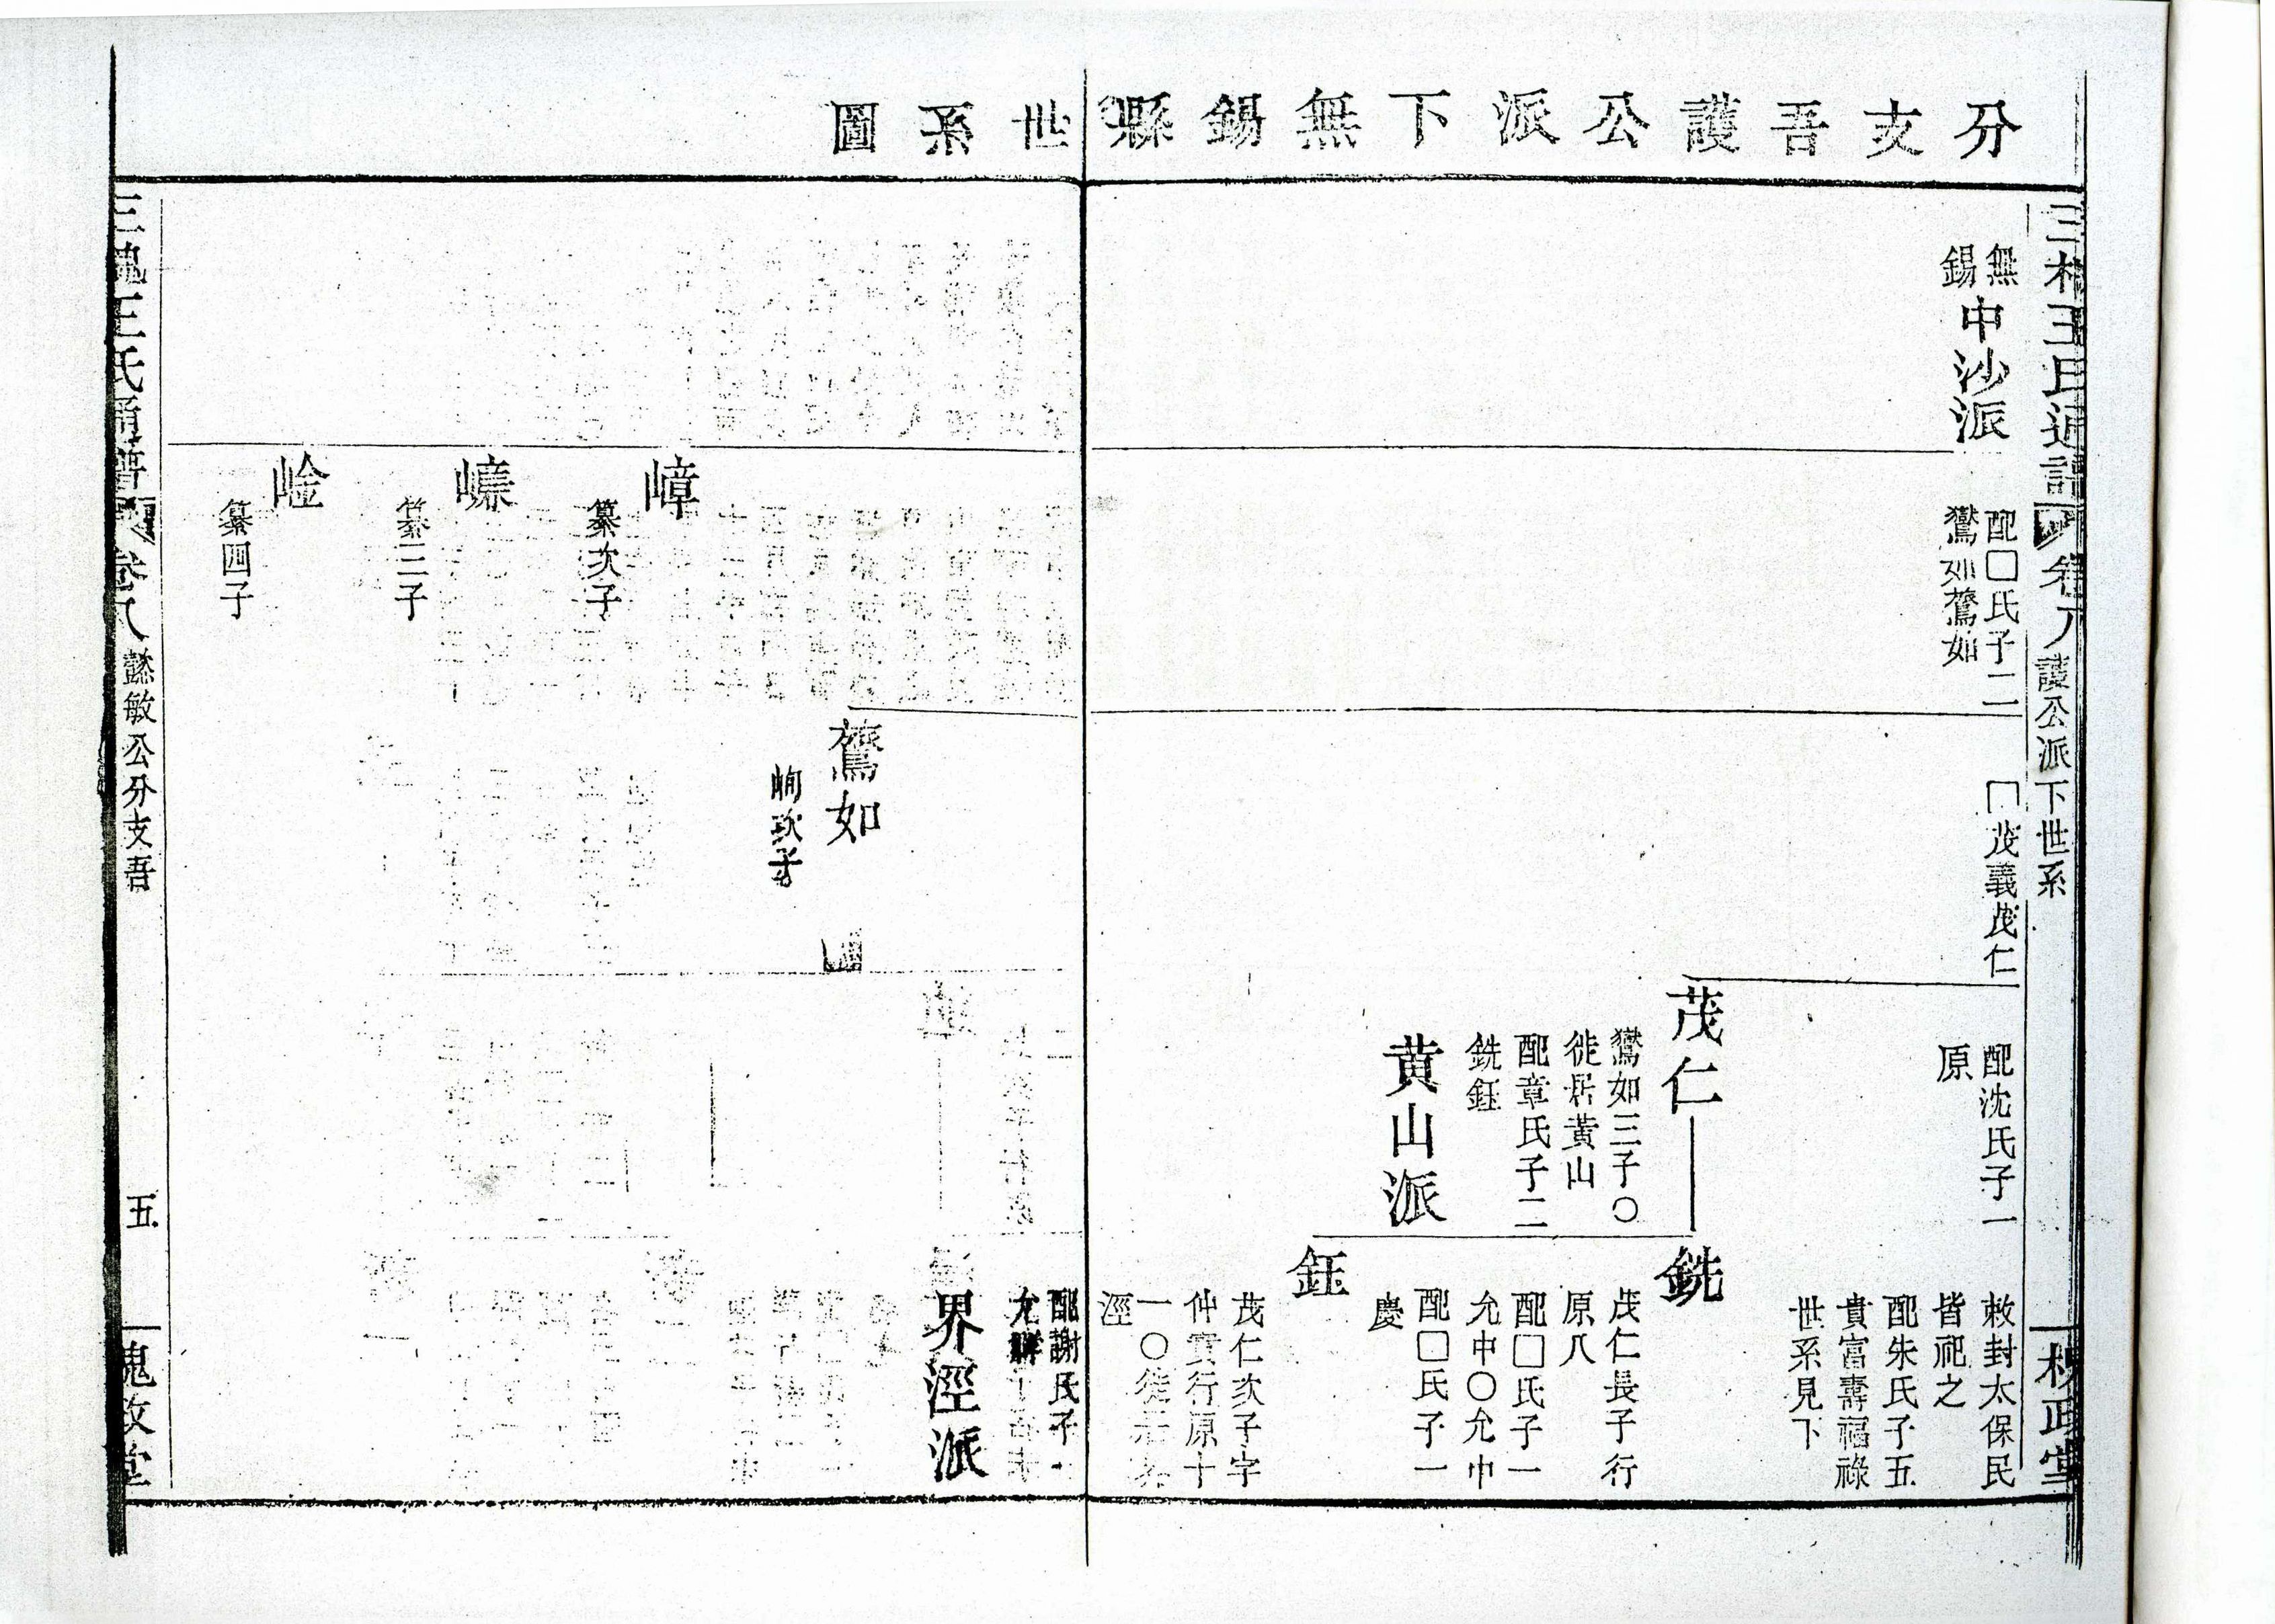 分支吾護公派下無錫縣世系圖
三槐王氏通譜
卷八
護公派下世系
槐政堂
無錫
中沙派
配□氏子二
鸑如鷟如
茂義茂仁
配沈氏子一
原
敕封太保民
皆祀之
配朱氏子五
貴富壽福祿
世系見下
茂仁
鸑如三子○
徙居黃山
配章氏子二
銑鈺
黃山派
銑
茂仁長子行
原八
配□氏子一
允中○允中
配□氏子一
慶
鈺
茂仁次子字
仲寶行原十
一○徙居界
涇
配謝氏子一
界涇派
鷟如
峋次子
嶂
纂次子
纂三子
崯
纂四子
三槐王氏通譜
卷八
懿敏公分支吾
五
槐政堂